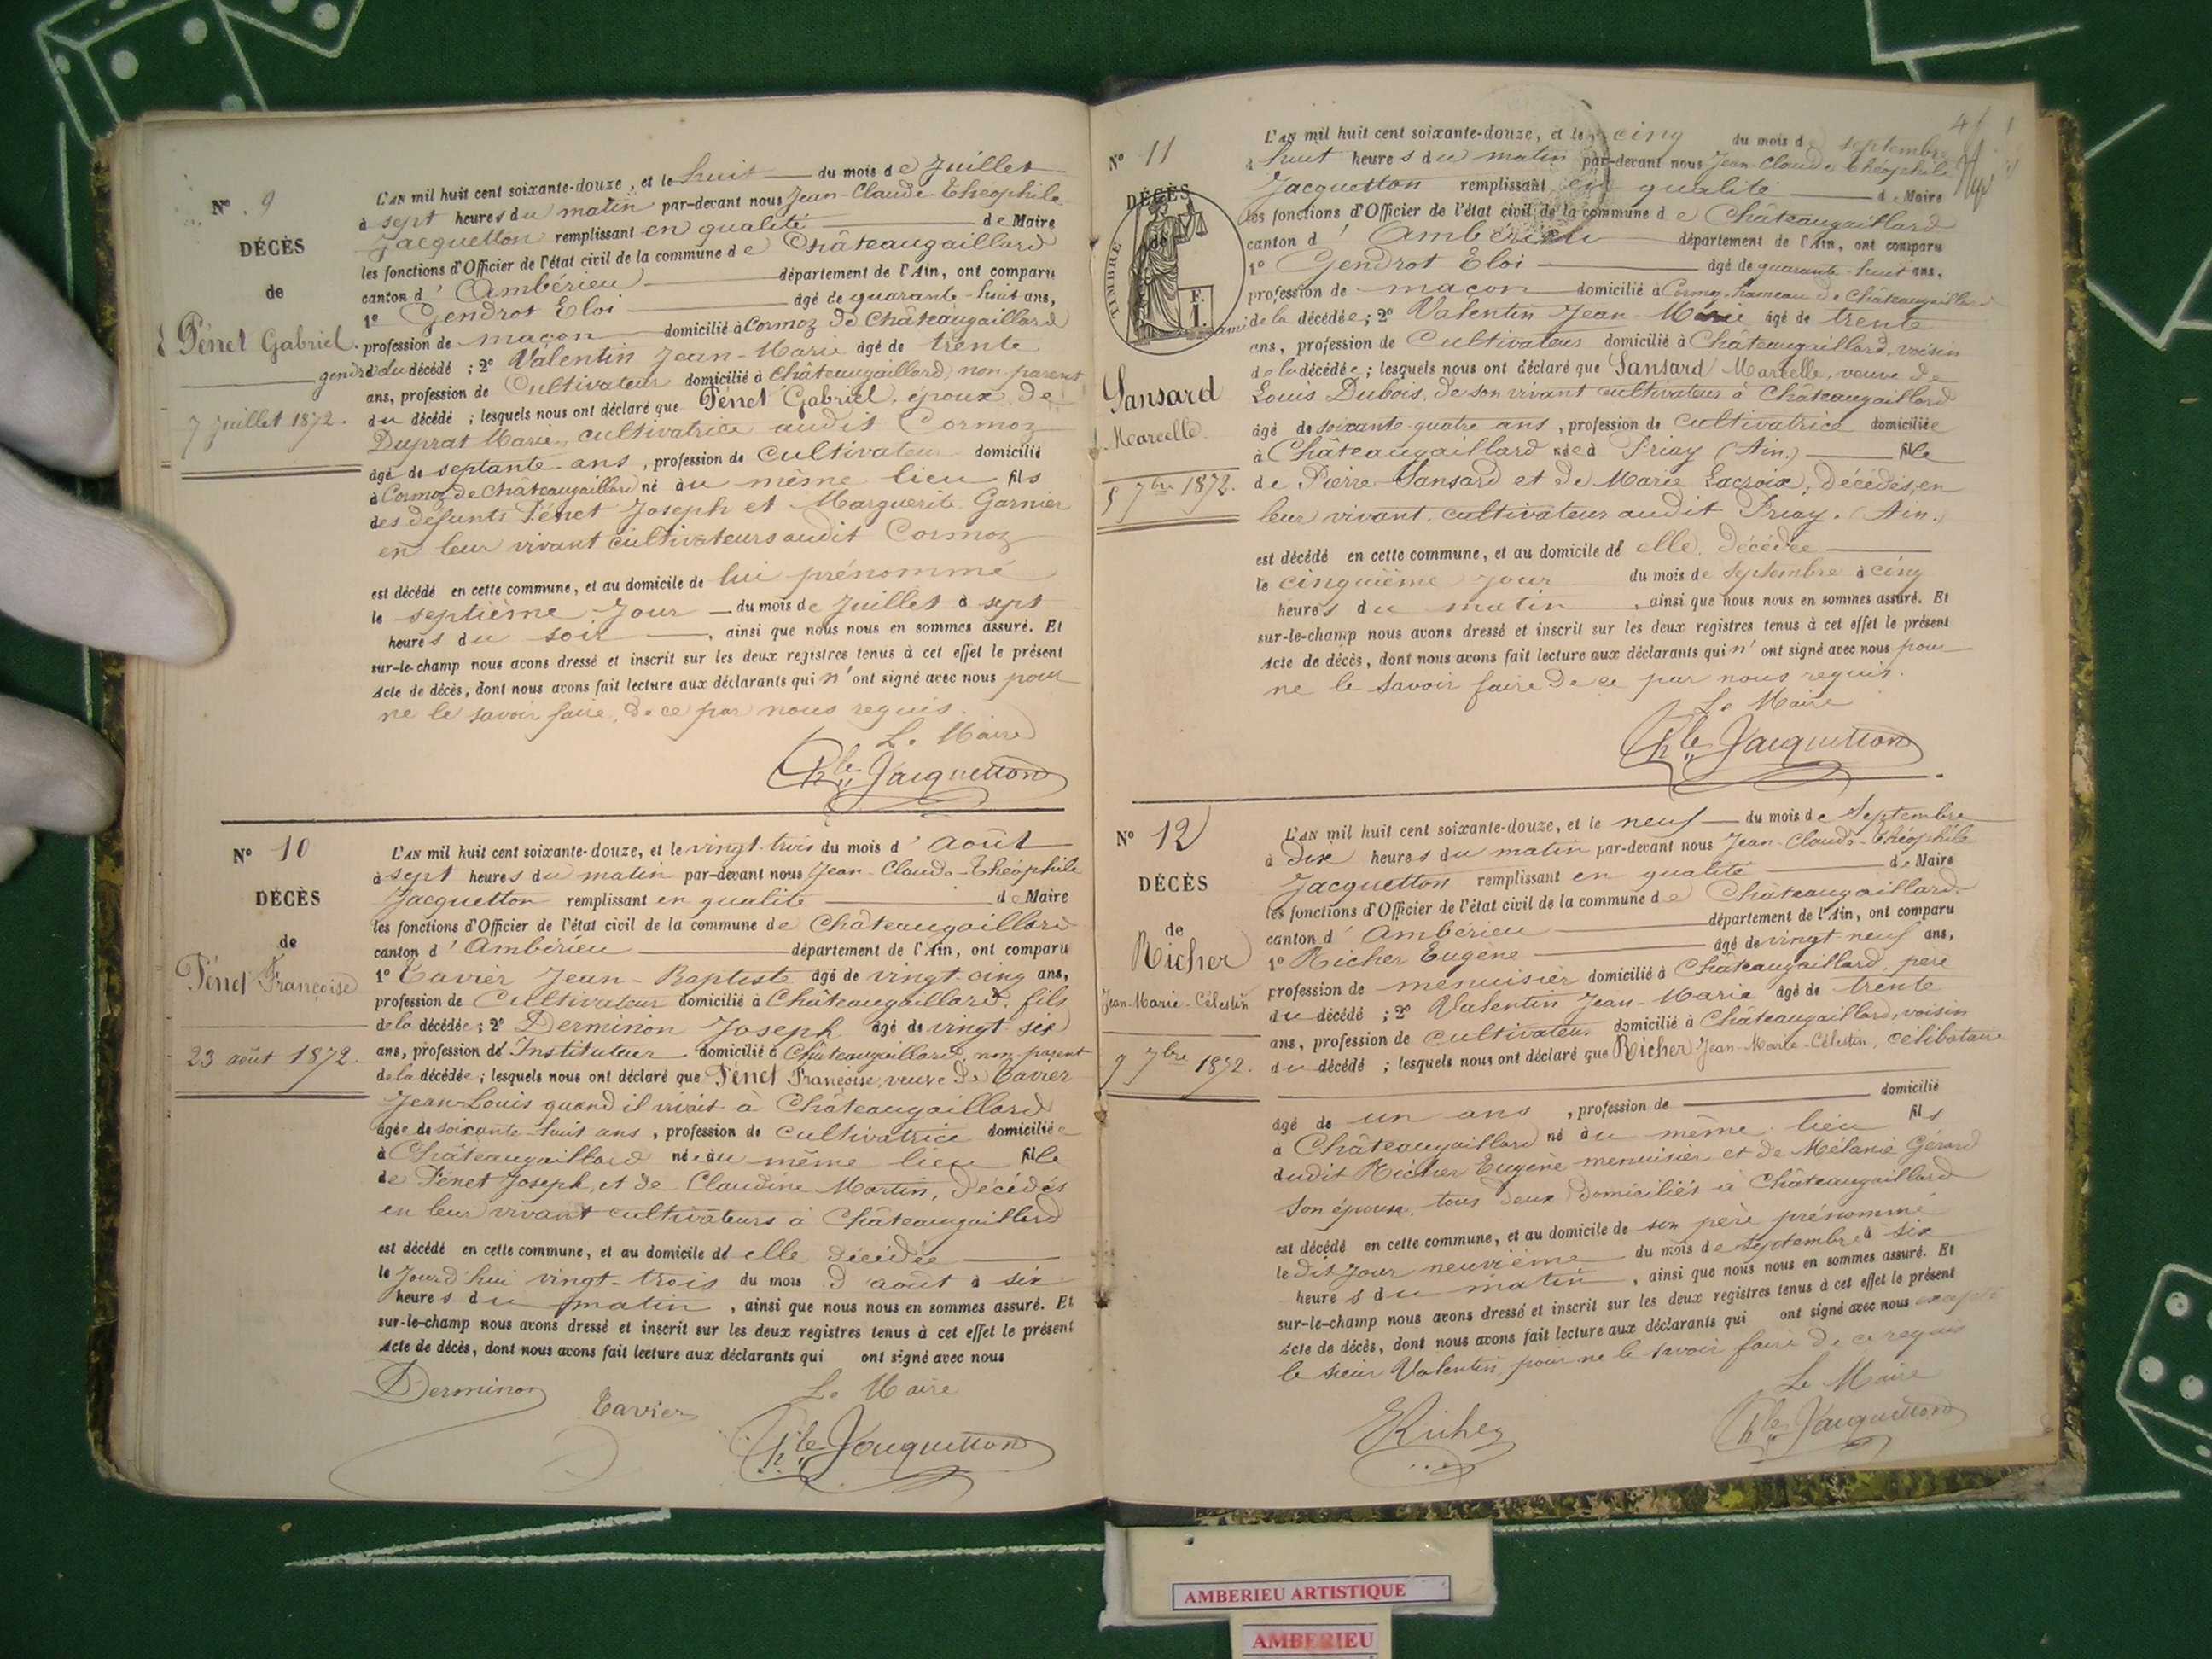 N° 9
DÉCÈS
de
Pénet Gabriel.
7 juillet 1872.
L'AN mil huit cent soixante-douze, et le huit du mois de Juillet
à sept heures du matin par-devant nous Jean-Claude Théophile
Jacquetton remplissant en qualité de Maire
les fonctions d'Officier de l'état civil de la commune de Châteaugaillard
canton d'Ambérieu département de l'Ain, ont comparu
1° Gendrot Eloi âgé de quarante-huit ans,
profession de maçon domicilié à Cormoz de Châteaugaillard
gendre du décédé ; 2° Valentin Jean-Marie âgé de trente
ans, profession de Cultivateur domicilié à Châteaugaillard, non parent
du décédé ; lesquels nous ont déclaré que Pénet Gabriel, époux de
Duprat Marie, cultivatrice audit Cormoz
âgé de septante ans, profession de Cultivateur domicilié
à Cormoz de Châteaugaillard né au même lieu fils
des défunts Pénet Joseph et Marguerite Garnier
en leur vivant cultivateurs audit Cormoz
est décédé en cette commune, et au domicile de lui prénommé
le septième jour du mois de Juillet à sept
heures du soir, ainsi que nous nous en sommes assuré. Et
sur-le-champ nous avons dressé et inscrit sur les deux registres tenus à cet effet le présent
Acte de décès, dont nous avons fait lecture aux déclarants qui n'ont signé avec nous pour
ne le savoir faire, de ce par nous requis.
Le Maire
Jacquetton
N° 10
DÉCÈS
de
Pénet Françoise
23 août 1872.
L'AN mil huit cent soixante-douze, et le vingt-trois du mois d'août
à sept heures du matin par-devant nous Jean-Claude-Théophile
Jacquetton remplissant en qualité de Maire
les fonctions d'Officier de l'état civil de la commune de Châteaugaillard
canton d'Ambérieu département de l'Ain, ont comparu
1° Tavier Jean-Baptiste âgé de vingt cinq ans,
profession de Cultivateur domicilié à Châteaugaillard, fils
de la décédée ; 2° Derminon Joseph âgé de vingt six
ans, profession de Instituteur domicilié à Châteaugaillard, non parent
de la décédée ; lesquels nous ont déclaré que Pénet Françoise, veuve de Tavier
Jean-Louis quand il vivait à Châteaugaillard
âgée de soixante-huit ans, profession de cultivatrice domiciliée
à Châteaugaillard née au même lieu fille
de Pénet Joseph, et de Claudine Martin, décédés
en leur vivant cultivateurs à Châteaugaillard
est décédé en cette commune, et au domicile de elle décédée
le jourd'hui vingt-trois du mois d'août à six
heures du matin, ainsi que nous nous en sommes assuré. Et
sur-le-champ nous avons dressé et inscrit sur les deux registres tenus à cet effet le présent
Acte de décès, dont nous avons fait lecture aux déclarants qui ont signé avec nous
Derminon Tavier Le Maire
Jacquetton
41
N° 11
DÉCÈS
de
TIMBRE
F. 1.
Sansard
Marcelle
5 7bre 1872.
L'AN mil huit cent soixante-douze, et le cinq du mois d septembre
à huit heures du matin par-devant nous Jean-Claude Théophile
Jacquetton remplissant en qualité de Maire
les fonctions d'Officier de l'état civil de la commune de Châteaugaillard
canton d'Ambérieu département de l'Ain, ont comparu
1° Gendrot Eloi âgé de quarante-huit ans,
profession de maçon domicilié à Cormoz, hameau de Châteaugaillard
ami de la décédée ; 2° Valentin Jean-Marie âgé de trente
ans, profession de Cultivateur domicilié à Châteaugaillard, voisin
de la décédée ; lesquels nous ont déclaré que Sansard Marcelle, veuve de
Louis Dubois, de son vivant cultivateur à Châteaugaillard
âgé de soixante-quatre ans, profession de Cultivatrice domiciliée
à Châteaugaillard née à Priay (Ain.) fille
de Pierre Sansard et de Marie Lacroix, décédés, en
leur vivant cultivateurs audit Priay. (Ain.)
est décédé en cette commune, et au domicile de elle décédée
le cinquième jour du mois de septembre à cinq
heures du matin, ainsi que nous nous en sommes assuré. Et
sur-le-champ nous avons dressé et inscrit sur les deux registres tenus à cet effet le présent
Acte de décès, dont nous avons fait lecture aux déclarants qui n'ont signé avec nous pour
ne le savoir faire de ce par nous requis.
Le Maire
Jacquetton
N° 12
DÉCÈS
de
Richer
Jean-Marie-Célestin
9 7bre 1872.
L'AN mil huit cent soixante-douze, et le neuf du mois de Septembre
à dix heures du matin par-devant nous Jean-Claude-Théophile
Jacquetton remplissant en qualité de Maire
les fonctions d'Officier de l'état civil de la commune de Châteaugaillard
canton d'Ambérieu département de l'Ain, ont comparu
1° Richer Eugène âgé de vingt-neuf ans,
profession de menuisier domicilié à Châteaugaillard, père
du décédé ; 2° Valentin Jean-Marie âgé de trente
ans, profession de cultivateur domicilié à Châteaugaillard, voisin
du décédé ; lesquels nous ont déclaré que Richer Jean-Marie-Célestin, célibataire
âgé de un ans, profession de domicilié
à Châteaugaillard né au même lieu fils
dudit Richer Eugène menuisier et de Mélanie Gérard
son épouse, tous deux domiciliés à Châteaugaillard
est décédé en cette commune, et au domicile de son père prénommé
le dit jour neuvième du mois de septembre à six
heures du matin, ainsi que nous nous en sommes assuré. Et
sur-le-champ nous avons dressé et inscrit sur les deux registres tenus à cet effet le présent
Acte de décès, dont nous avons fait lecture aux déclarants qui ont signé avec nous excepté
le sieur Valentin pour ne le savoir faire de ce requis
Le Maire
ERicher Jacquetton
AMBERIEU ARTISTIQUE
AMBERIEU